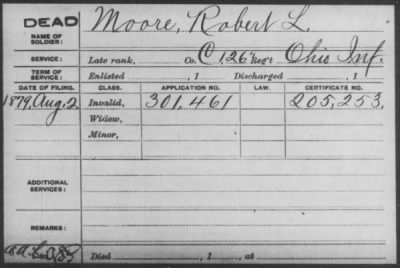 DEAD
NAME OF SOLDIER: Moore, Robert L.
SERVICE: Late rank, Co. C 126 Reg't Ohio Inf.
TERM OF SERVICE: Enlisted , 1 Discharged , 1
DATE OF FILING. CLASS. APPLICATION NO. LAW. CERTIFICATE NO.
1879, Aug. 2 Invalid, 301,461 205,253.
Widow,
Minor,
ADDITIONAL SERVICES:
REMARKS:
Died , 1 , at